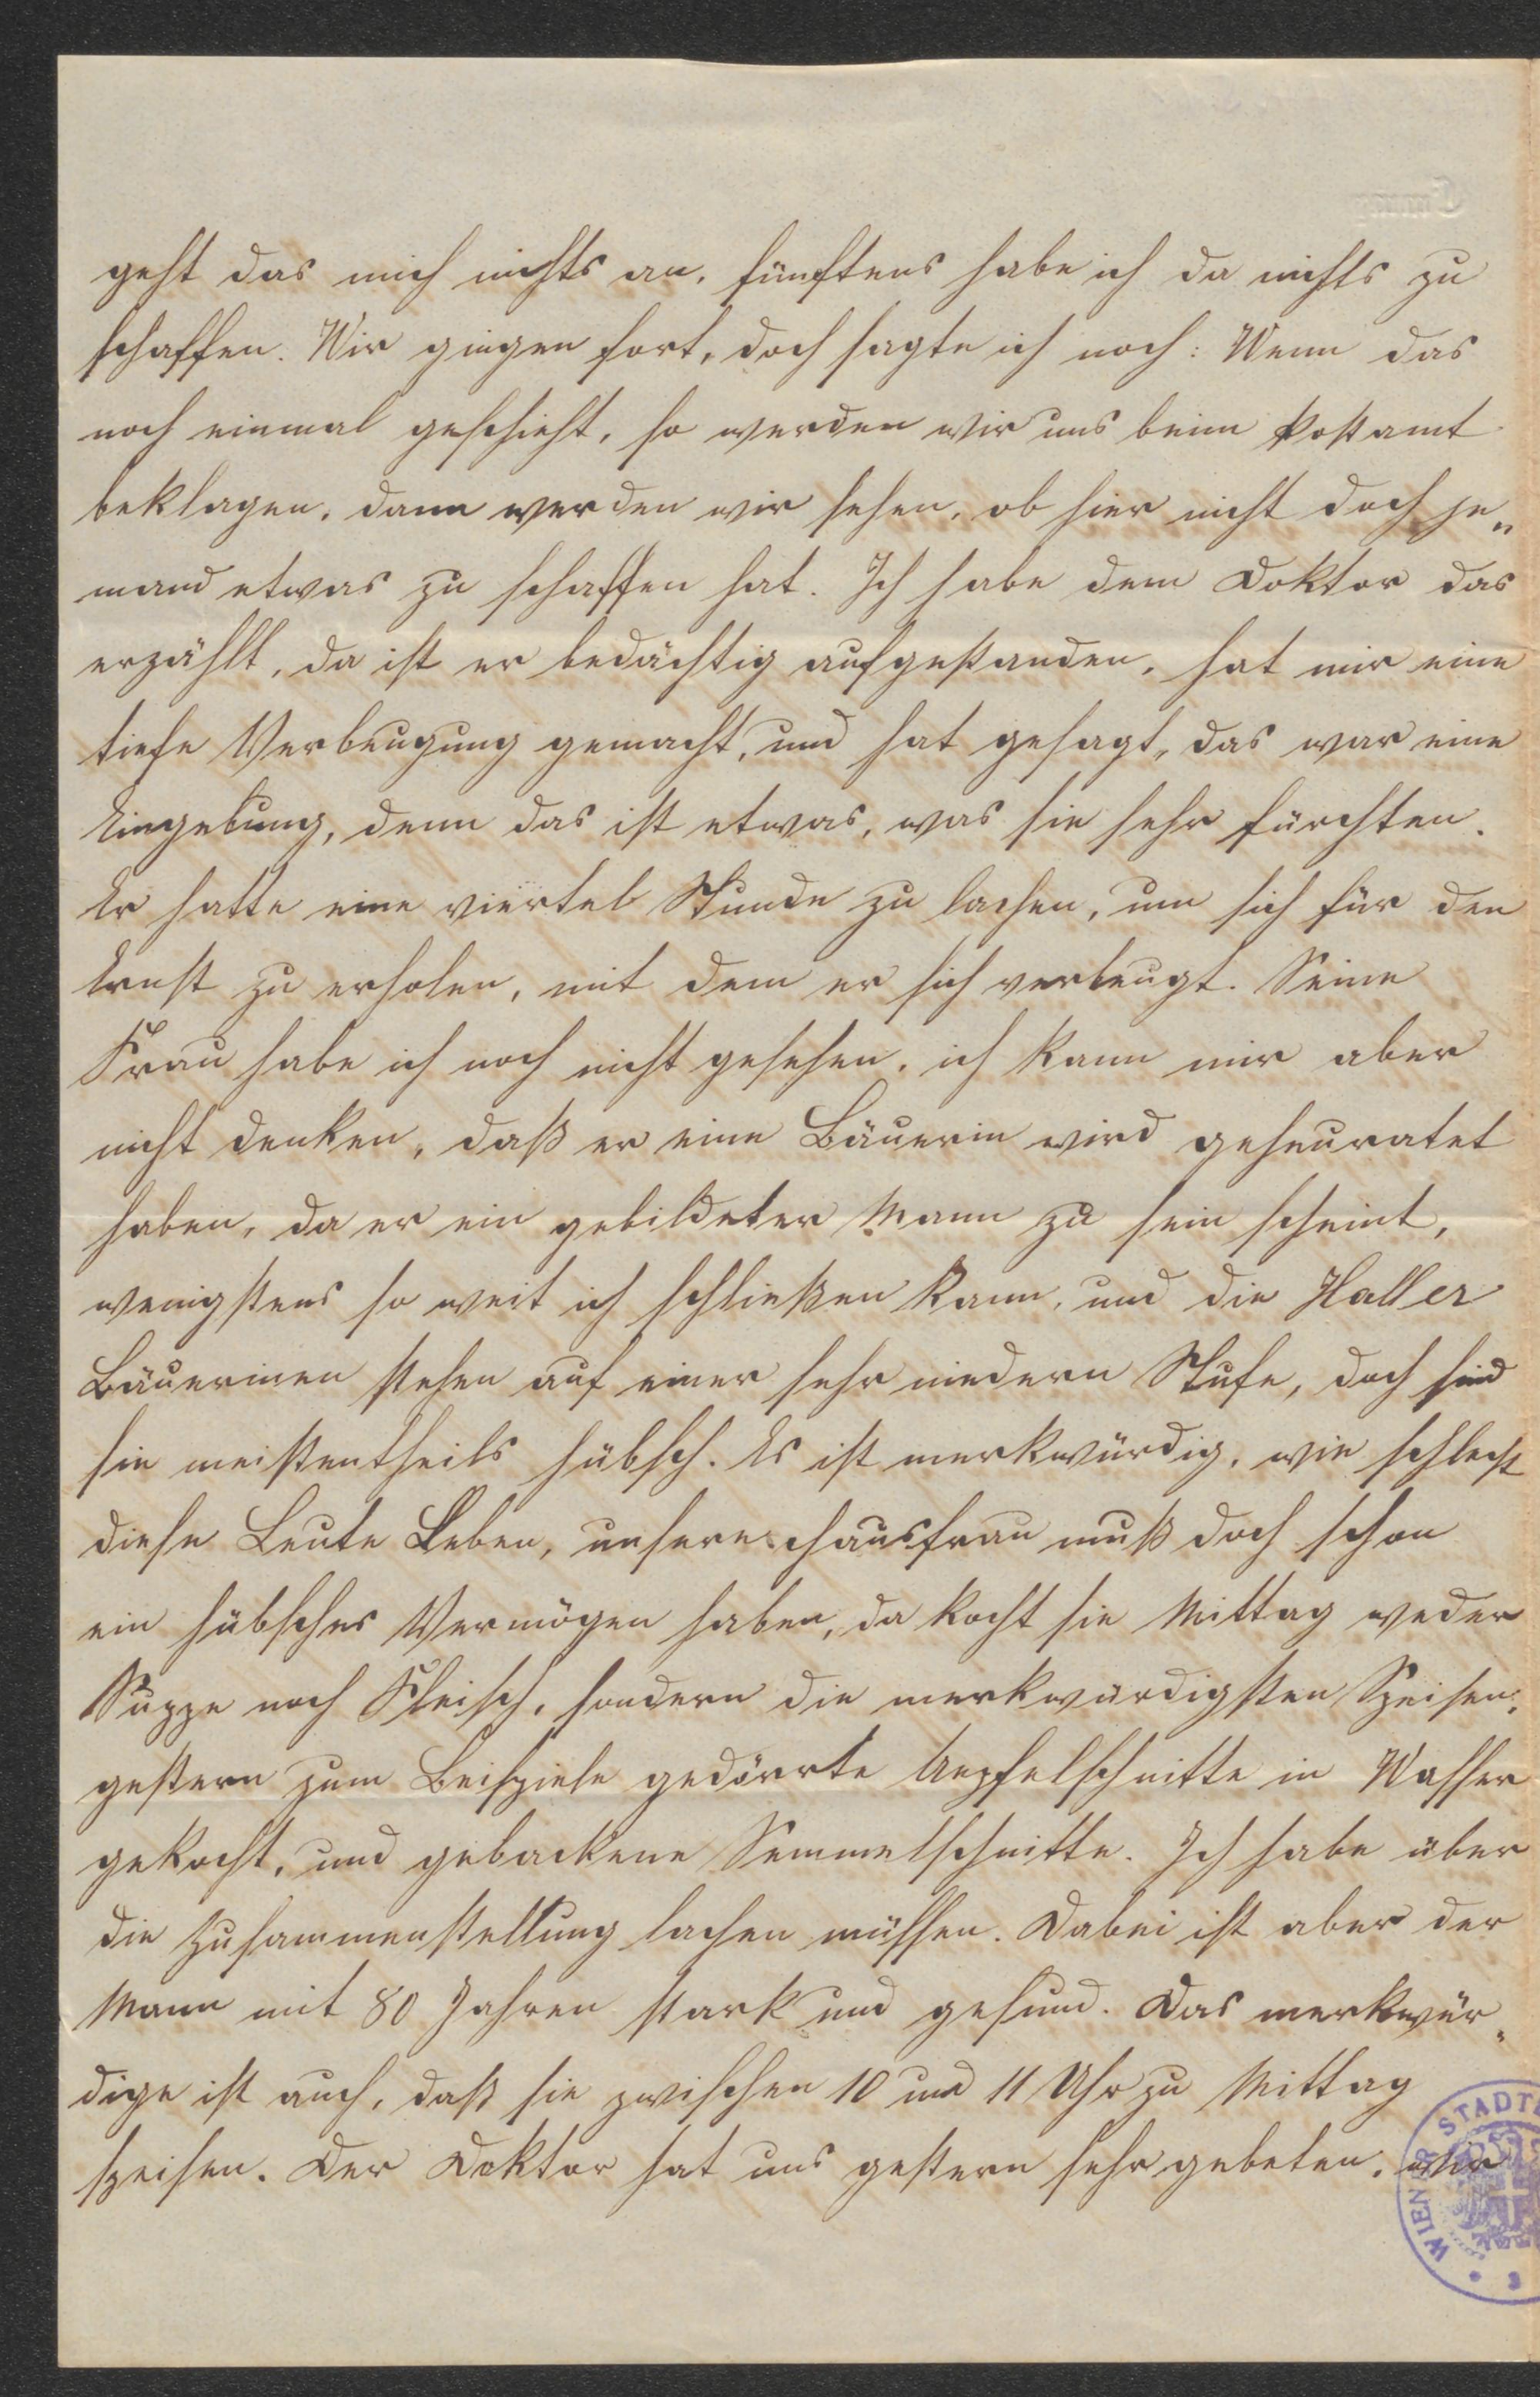 geht das mich nichts an, fünftens habe ich da nichts zu
schaffen. Wir gingen fort, doch sagte ich noch: Wenn das
noch einmal geschieht, so werden wir uns beim Postamt
beklagen, dann werden wir sehen, ob hier nicht doch je„
mand etwas zu schaffen hat. Ich habe dem Doktor das
erzählt, da ist er bedächtig aufgestanden, hat mir eine
tiefe Verbeugung gemacht, und hat gesagt, das war eine
Eingebung, denn das ist etwas, was sie sehr fürchten.
Er hatte eine viertel Stunde zu lachen, um sich für den
Ernst zu erholen, mit dem er sich verbeugt. Seine
Frau habe ich noch nicht gesehen, ich kann mir aber
nicht denken, daß er eine Bäuerin wird geheuratet
haben, da er ein gebildeter Mann zu sein scheint,
wenigstens so weit ich schließen kann, und die Haller
Bäuerinen stehen auf einer sehr niedern Stufe, doch sind
sie meistentheils hübsch. Es ist merkwürdig, wie schlecht
diese Leute Leben, unsere Hausfrau muß doch schon
ein hübsches Vermögen haben, da kocht sie Mittag weder
Suppe noch Fleisch, sondern die merkwürdigsten Speisen,
gestern zum Beispiele gedörrte Aepfelschnitte in Wasser
gekocht, und gebackene Semmelschnitte. Ich habe über
die Zusammenstellung lachen müssen. Dabei ist aber der
Mann mit 80 Jahren stark und gesund. Das merkwür„
dige ist auch, daß sie zwischen 10 und 11 Uhr zu Mittag
speisen. Der Doktor hat uns gestern sehr gebeten, wir
WIENER STADTB